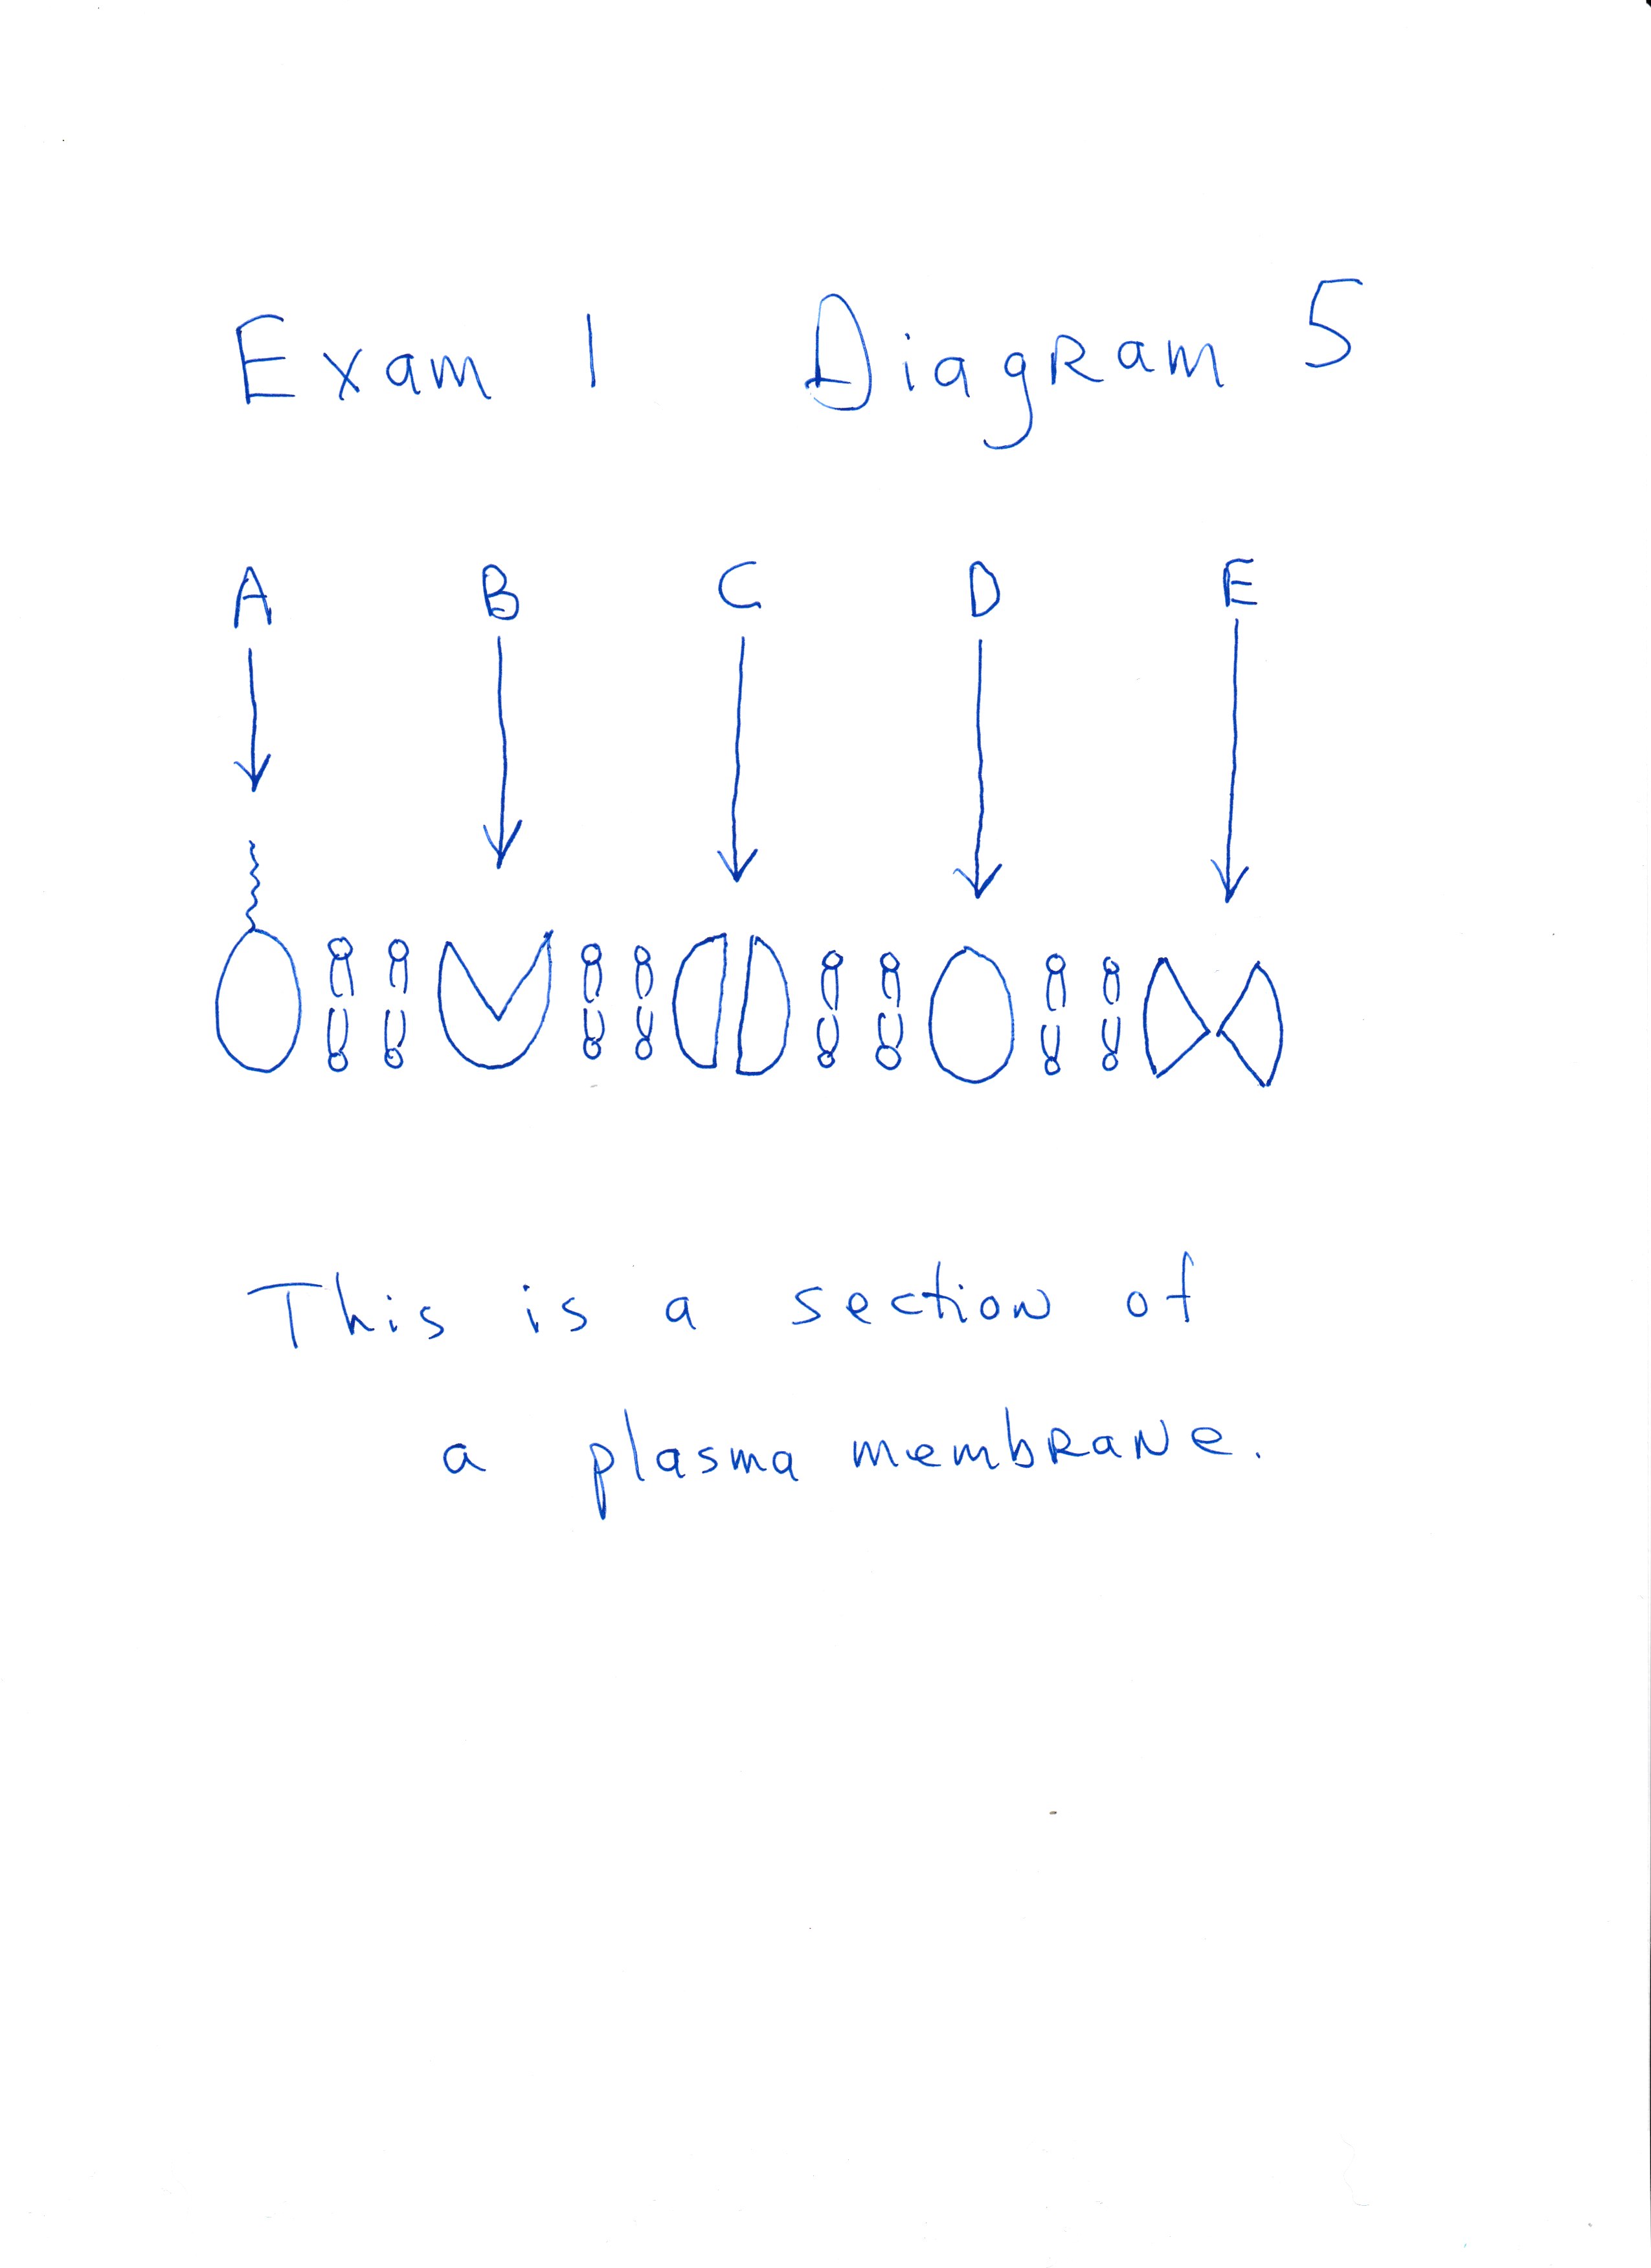 Exam 1 Diagram 5
A B C D E
This is a section of
a plasma membrane.